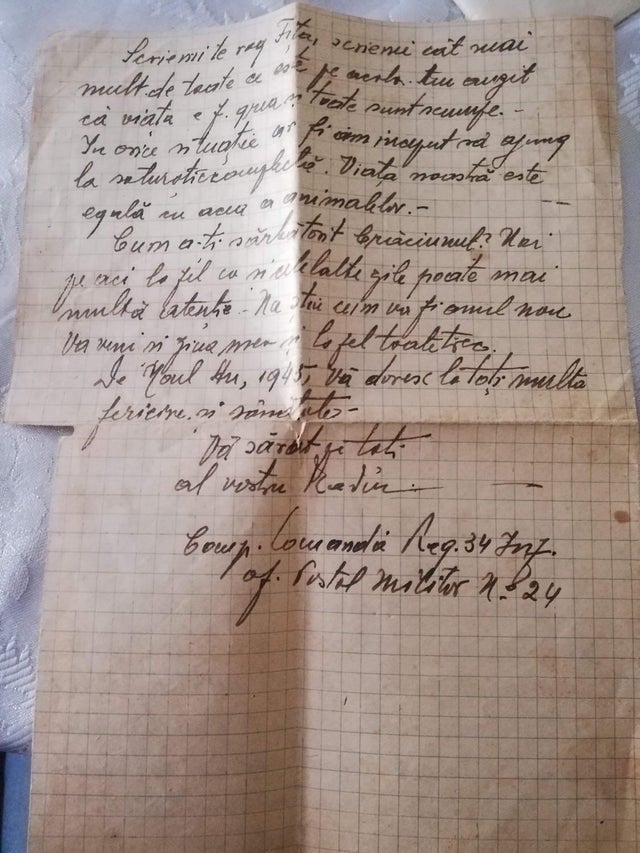 Scriemi te rog Fița, scriemi cât mai
mult de toate ce este pe acolo. Am auzit
că viața e f. grea și toate sunt scumpe. -
In orice situație ar fi am inceput să ajung
la saturație completă. Viața noastră este
egală cu acea a animalelor. -
Cum a-ți sărbătorit Crăciunul? Noi
pe aci la fel ca si celelalte zile poate mai
multă atenție. Nu știu cum va fi anul nou
Va veni si ziua mea și la fel toate trec.
De Noul An, 1945, Vă doresc la toți multa
fericire si sănătate -
Vă sărut pe toti
al vostru Radu. -
Comp. Comandă Reg. 34 Inf.
of. Postal Militar No 24